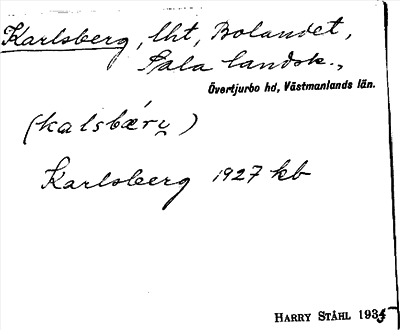 Karlsberg, lht, Bolandet,
Sala landsk.,
Övertjurbo hd, Västmanlands län.
(kalsbǽry̬)
Karlsberg 1927 kb
HARRY STÅHL 1935